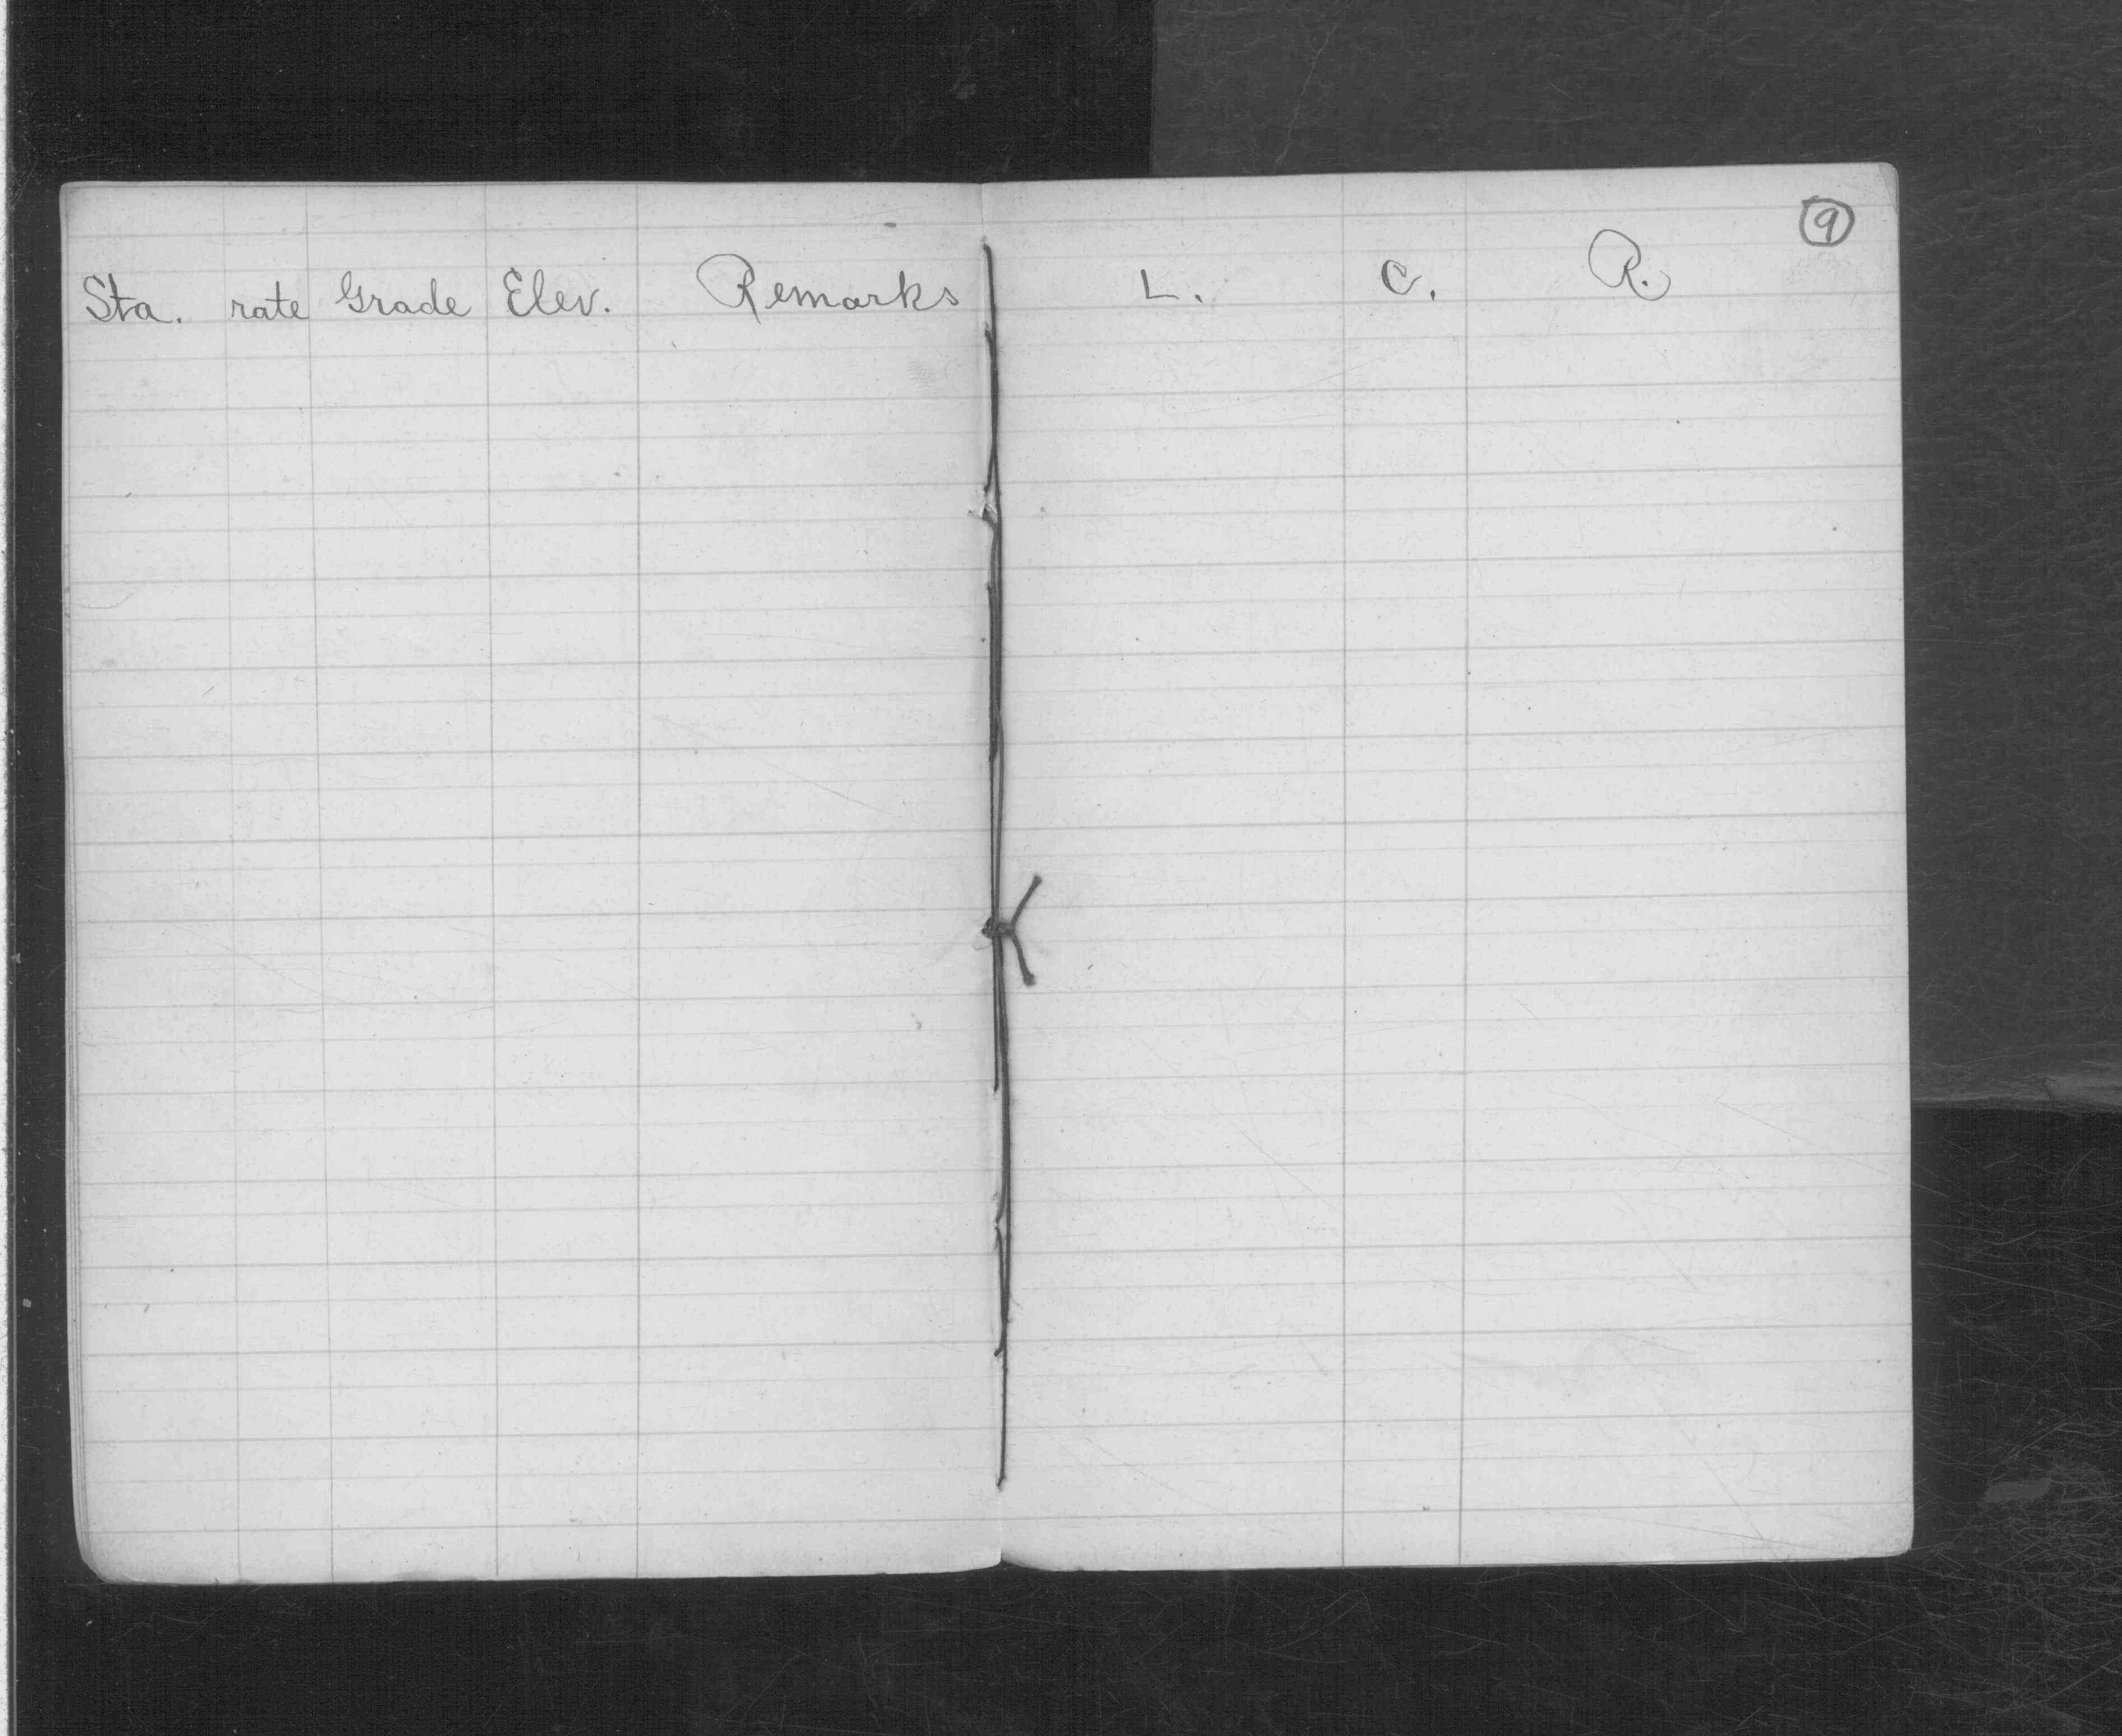 9
Sta. rate Grade Elev. Remarks L. C. R.